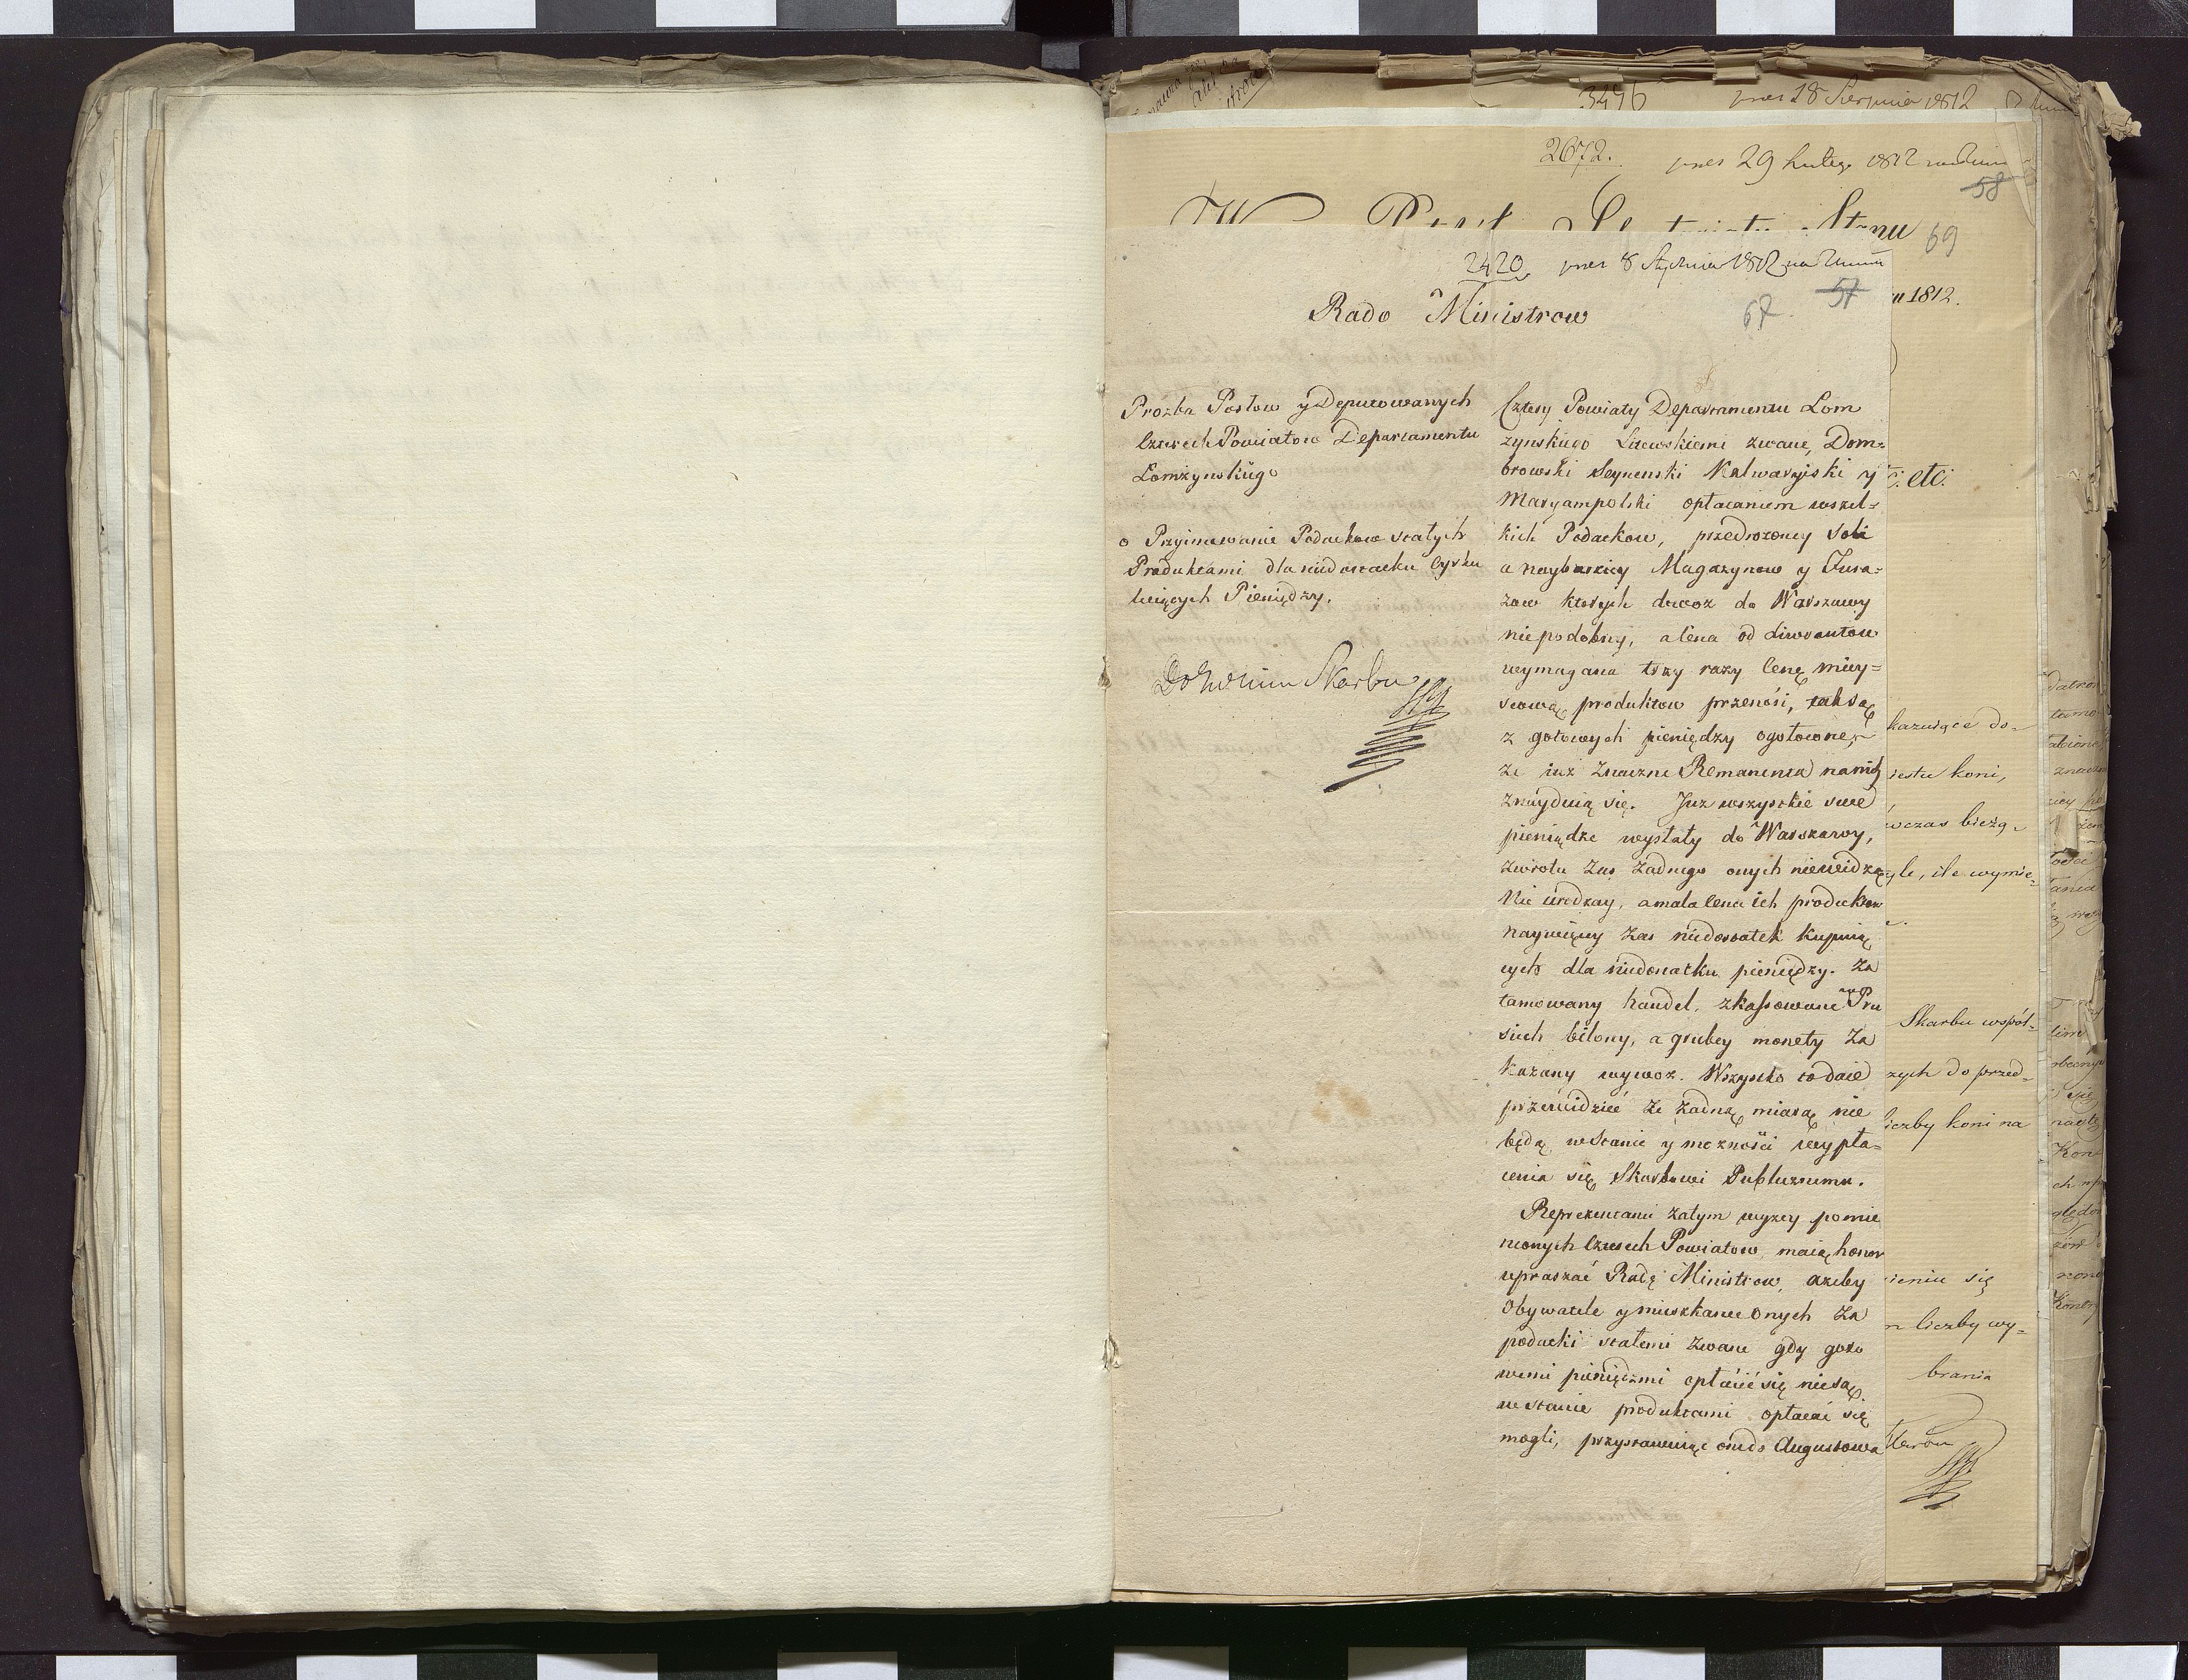 3496 pres 18 Sierpnia 1812
2672. pres 29 Lutego 1812
58
69
2420 pres 8 Stycznia 1812 na
57
67.
Rado Ministrow
Prozba Posłow y Deputowanych
Czterech Powiatow Departamentu
Łomżynskiego
o Przyimowanie Podatkow stałych
Produktami dla niedostatku cyrku
luiących Pieniędzy.
Skarbu
Cztery Powiaty Departamentu Lom
zynskiego Litewskiemi zwane, Dom=
browski Seynenski Kalwaryiski y
Maryampolski opłacaniem wszel=
kich Podatkow, przedrozoney Soli
a naybarziey Magazynow y Fura=
zow ktorych dowoz do Warszawy
niepodobny, a Cena od Liwrantow
wymagana trzy razy Cenę miey=
scową produktow przenosi, tak są
z gotowych pieniędzy ogołocone,
że iuż znaczne Remanenta na nich
znayduią się. Juz wszystkie swe
pieniądze wysłały do Warszawy,
zwrotu zas żadnego onych niewidzą
Nie urodzay, a mała Cena ich produktow
naywięcey zas niedostatek kupuią
cych dla niedostatku pieniędzy. Za
tamowany handel, zkassowane w Pru
siech bilony, a grubey monety Za
kazany wywoz. Wszystko to daie
przewidzieć że żadną miarą nie
będą w stanie y możności wypła=
cenia się Skarbowi Publicznemu.
Reprezentanci zatym wyzey pomie
nionych Czterech Powiatow, maią honor
upraszać Radę Ministrow, azeby
Obywatele y mieszkance onych Za
podatki stałemi zwane gdy goto
wemi pieniędzmi opłacić się nie są
w stanie produktami opłacać się
mogli, przystawuiąc one do Augustowa
Stanu
u 1812.
etc:
kazuiące do=
iestu koni,
wczas bieżą=
yle, ile wymie=
Skarbu współ=
zych do przed=
iczby koni na
ieniu się
n liczby wy=
brania